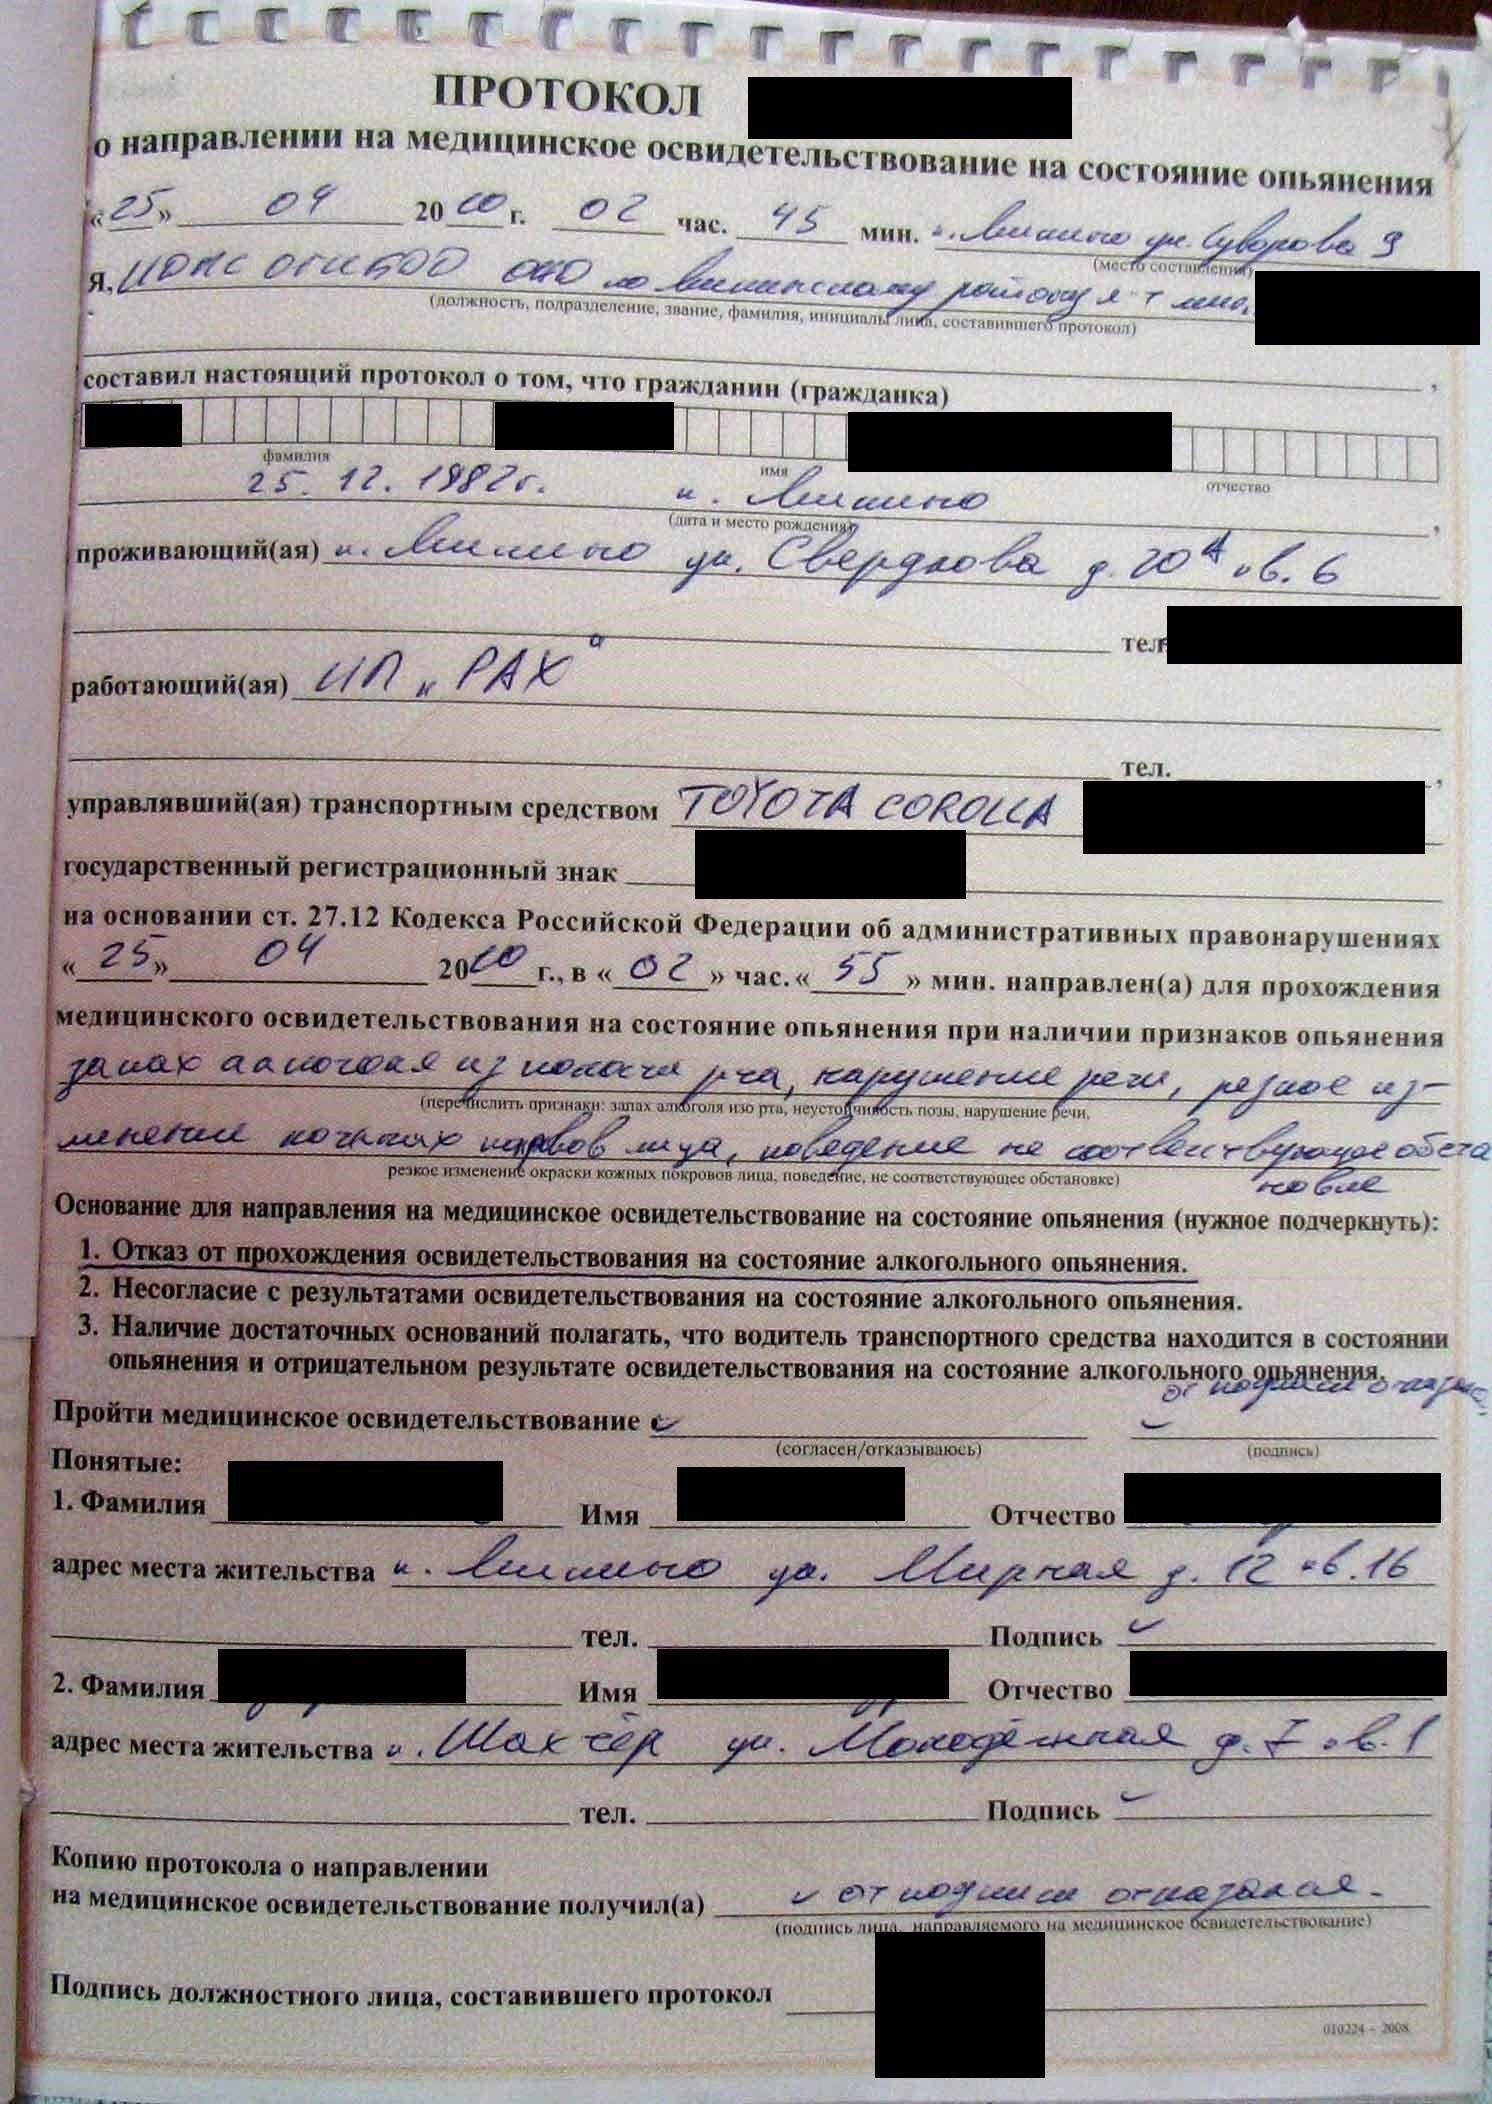 ПРОТОКОЛ
о направлении на медицинское освидетельствование на состояние опьянения
«25» 04 20 г. 02 час. 45 мин. ул. Суворова 9
(место составления)
Я, ОГИБДД ОВД по району л-т мил.
(должность, подразделение, звание, фамилия, инициалы лица, составившего протокол)
составил настоящий протокол о том, что гражданин (гражданка)
фамилия имя отчество
25. 12. 1982г. п.
(дата и место рождения)
проживающий(ая) п. ул. Свердлова д. 20А кв. 6
тел
работающий(ая) ИП „РАХ"
тел.
управлявший(ая) транспортным средством TOYOTA COROLLA
государственный регистрационный знак
на основании ст. 27.12 Кодекса Российской Федерации об административных правонарушениях
«25» 04 20 г., в «02» час. «55» мин. направлен(а) для прохождения
медицинского освидетельствования на состояние опьянения при наличии признаков опьянения
запах алкоголя из полости рта, нарушение речи, резкое из-
(перечислить признаки: запах алкоголя изо рта, неустойчивость позы, нарушение речи,
менение лица, поведение не соответствующее обста
резкое изменение окраски кожных покровов лица, поведение, не соответствующее обстановке)
новке
Основание для направления на медицинское освидетельствование на состояние опьянения (нужное подчеркнуть):
1. Отказ от прохождения освидетельствования на состояние алкогольного опьянения.
2. Несогласие с результатами освидетельствования на состояние алкогольного опьянения.
3. Наличие достаточных оснований полагать, что водитель транспортного средства находится в состоянии
опьянения и отрицательном результате освидетельствования на состояние алкогольного опьянения.
от подписи
Пройти медицинское освидетельствование
(согласен/отказываюсь) (подпись)
Понятые:
1. Фамилия Имя Отчество
адрес места жительства п. ул. Мирная д. 12 кв. 16
тел. Подпись
2. Фамилия Имя Отчество
адрес места жительства п. Шахтёр ул. Молодёжная д. 7 кв. 1
тел. Подпись
Копию протокола о направлении
на медицинское освидетельствование получил(а) от подписи отказался.
(подпись лица, направляемого на медицинское освидетельствование)
Подпись должностного лица, составившего протокол
010224 – 2008